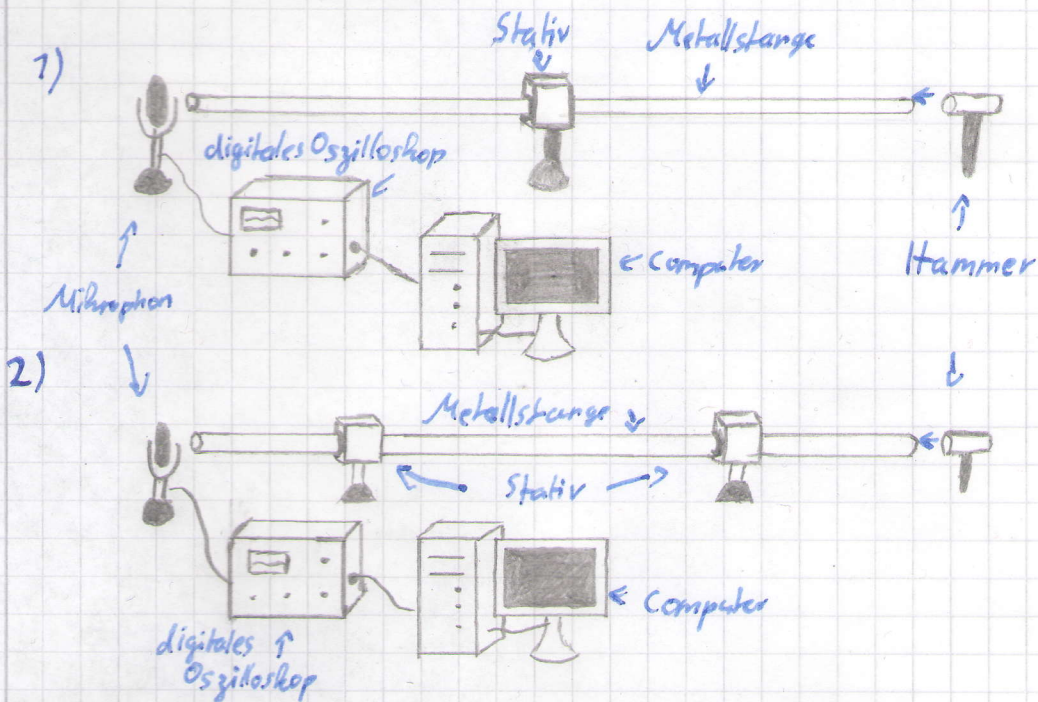 1)
Stativ
Metallstange
digitales Oszilloskop
Computer
Hammer
Mikrophon
2)
Metallstange
Stativ
Computer
digitales
Oszilloskop